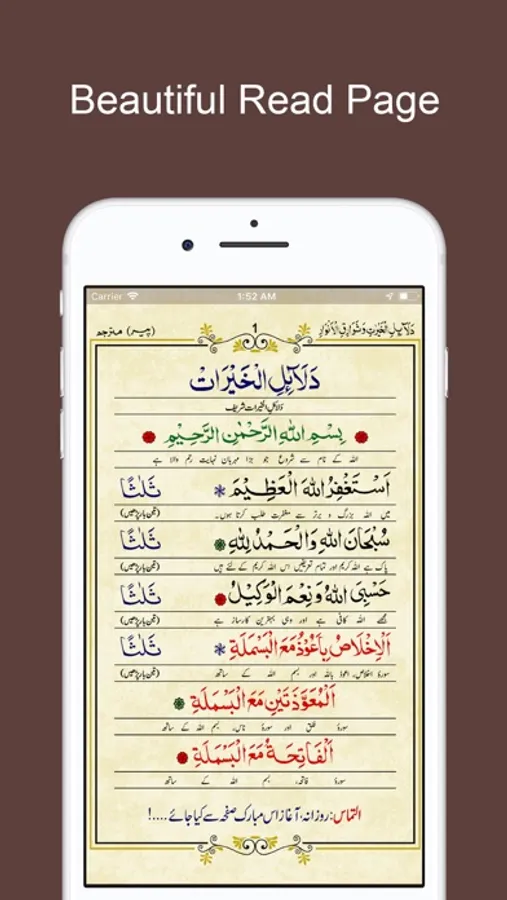 Beautiful Read Page
Carrier 1:52 AM
دَلَآئِلُ الْخَيْرَاتِ وَشَوَارِقُ الْاَنْوَارِ 1 (پیر) مترجم
دَلَآئِلِ الْخَيْرَاتْ
دلائل الخیرات شریف
بِسْمِ اللهِ الرَّحْمٰنِ الرَّحِيْمِ
اللہ کے نام سے شروع جو بڑا مہربان نہایت رحم والا ہے
اَسْتَغْفِرُ اللهَ الْعَظِيْمَ ثَلٰثًا
میں اللہ بزرگ و برتر سے مغفرت طلب کرتا ہوں۔ (تین بار پڑھیں)
سُبْحَانَ اللهِ وَالْحَمْدُ لِلّٰهِ ثَلٰثًا
پاک ہے اللہ کریم اور تمام تعریفیں اس اللہ کریم کے لئے ہیں (تین بار پڑھیں)
حَسْبِيَ اللهُ وَنِعْمَ الْوَكِيْلُ ثَلٰثًا
مجھے اللہ کافی ہے اور وہی بہترین کارساز ہے (تین بار پڑھیں)
اَلْاِخْلَاصُ بِاَعُوْذُ مَعَ الْبَسْمَلَةِ ثَلٰثًا
سورۃ اخلاص، اعوذ باللہ اور بسم اللہ کے ساتھ (تین بار پڑھیں)
اَلْمُعَوَّذَتَيْنِ مَعَ الْبَسْمَلَةِ
سورۃ فلق اور سورۃ ناس، بسم اللہ کے ساتھ
اَلْفَاتِحَةُ مَعَ الْبَسْمَلَةِ
سورۃ فاتحہ، بسم اللہ کے ساتھ
التماس: روزانہ، آغاز اس مبارک صفحہ سے کیا جائے....!